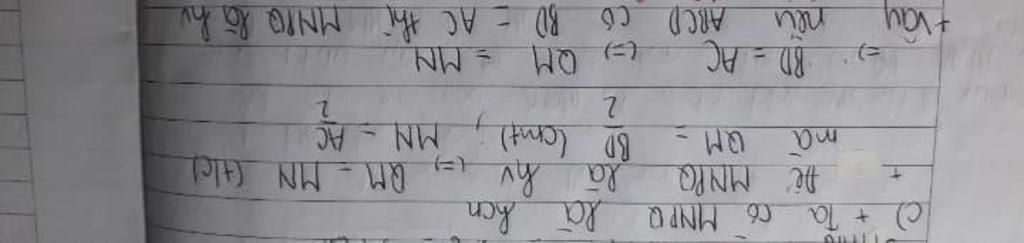 c) + Ta có MNPQ là hcn
+ Để MNPQ là hv (=) QM = MN (t/c)
mà QM = BD/2 (cmt) ; MN = AC/2
=) BD = AC (=) QM = MN
+ Vậy nếu ABCD có BD = AC thì MNPQ là hv